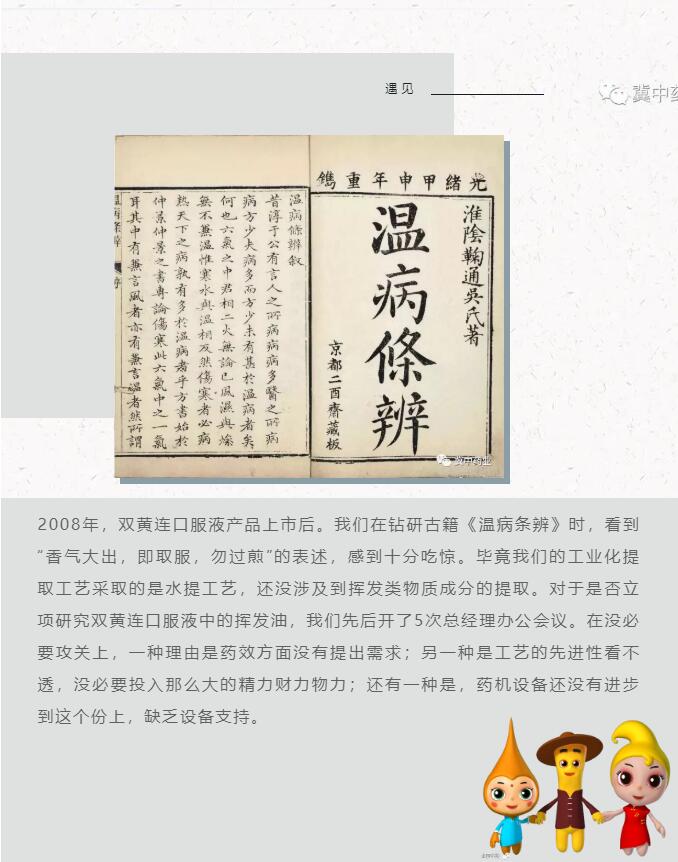 遇见
冀中药
光緒甲申年重鐫
淮陰鞠通吳氏著
温病條辨
京都二酉齋藏板
温病條辨叙
昔淳于公有言人之所病病病多醫之所病
病方少夫病多而方少未有甚於温病者矣
何也六氣之中君相二火無論已風濕與燥
無不兼温惟寒水與温相反然傷寒者必病
熱天下之病孰有多於温病者乎方書始於
仲景仲景之書專論傷寒此六氣中之一氣
耳其中有兼言風者亦有兼言温者然所謂
冀中药业
2008年，双黄连口服液产品上市后。我们在钻研古籍《温病条辨》时，看到
“香气大出，即取服，勿过煎”的表述，感到十分吃惊。毕竟我们的工业化提
取工艺采取的是水提工艺，还没涉及到挥发类物质成分的提取。对于是否立
项研究双黄连口服液中的挥发油，我们先后开了5次总经理办公会议。在没必
要攻关上，一种理由是药效方面没有提出需求；另一种是工艺的先进性看不
透，没必要投入那么大的精力财力物力；还有一种是，药机设备还没有进步
到这个份上，缺乏设备支持。